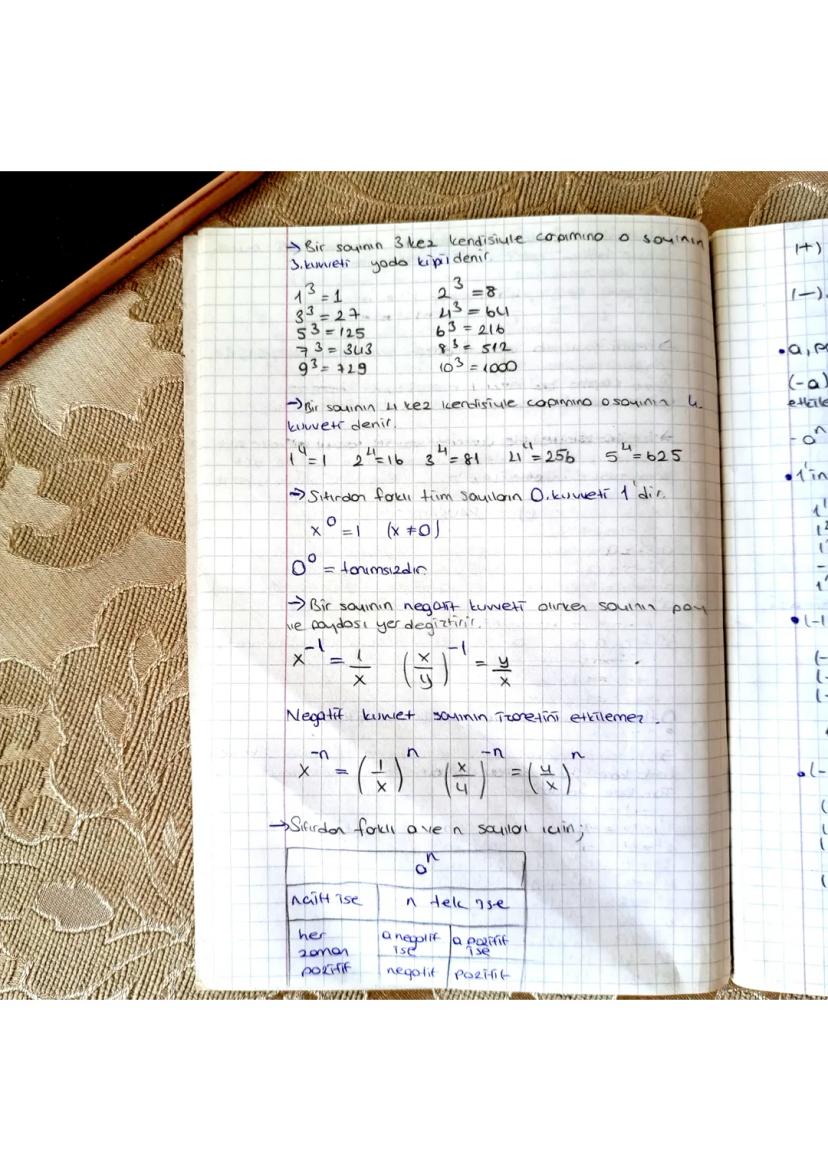 → Bir sayının 3 kez kendisiyle çarpımına o sayının
3. kuvveti yada küpü denir.
1³ = 1 2³ = 8
3³ = 27 4³ = 64
5³ = 125 6³ = 216
7³ = 343 8³ = 512
9³ = 729 10³ = 1000
→ Bir sayının 4 kez kendisiyle çarpımına o sayının 4.
kuvveti denir.
1⁴ = 1 2⁴ = 16 3⁴ = 81 4⁴ = 256 5⁴ = 625
→ Sıfırdan farklı tüm sayıların 0. kuvveti 1'dir.
x⁰ = 1 (x ≠ 0)
0⁰ = tanımsızdır.
→ Bir sayının negatif kuvveti alınırken sayının pay
ve paydası yer değiştirir.
x⁻¹ = 1/x (x/y)⁻¹ = y/x
Negatif kuvvet sayının işaretini etkilemez.
x⁻ⁿ = (1/x)ⁿ (x/y)⁻ⁿ = (y/x)ⁿ
→ Sıfırdan farklı a ve n sayıları için;
aⁿ
n çift ise n tek ise
her zaman pozitif
a negatif ise a pozitif ise
negatif pozitif
(+)
(-)
• a, p
(-a)
etkile
-aⁿ
• 1'in
• (-1
• (-